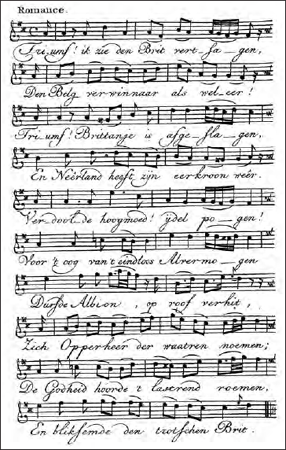 Romance.
Triumf! ik zie den Brit vert-sa-gen,
Den Belg verwinnaar als wel-eer!
Tri-umf! Brittanje is afge-sla-gen,
En Neêrland heeft zijn eerkroon weêr.
Verdool de hoogmoed! ijdel po-gen!
Voor 't oog van 't eindloos Alvermo-gen
Durfde Albion, op roof verhit,
Zich Opperheer der waatren noemen;
De Godheid hoorde 't lastrend roemen,
En bliksemde den trotschen Brit.